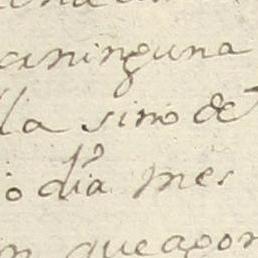 aninguna
la sino de
o dia mes
que agor